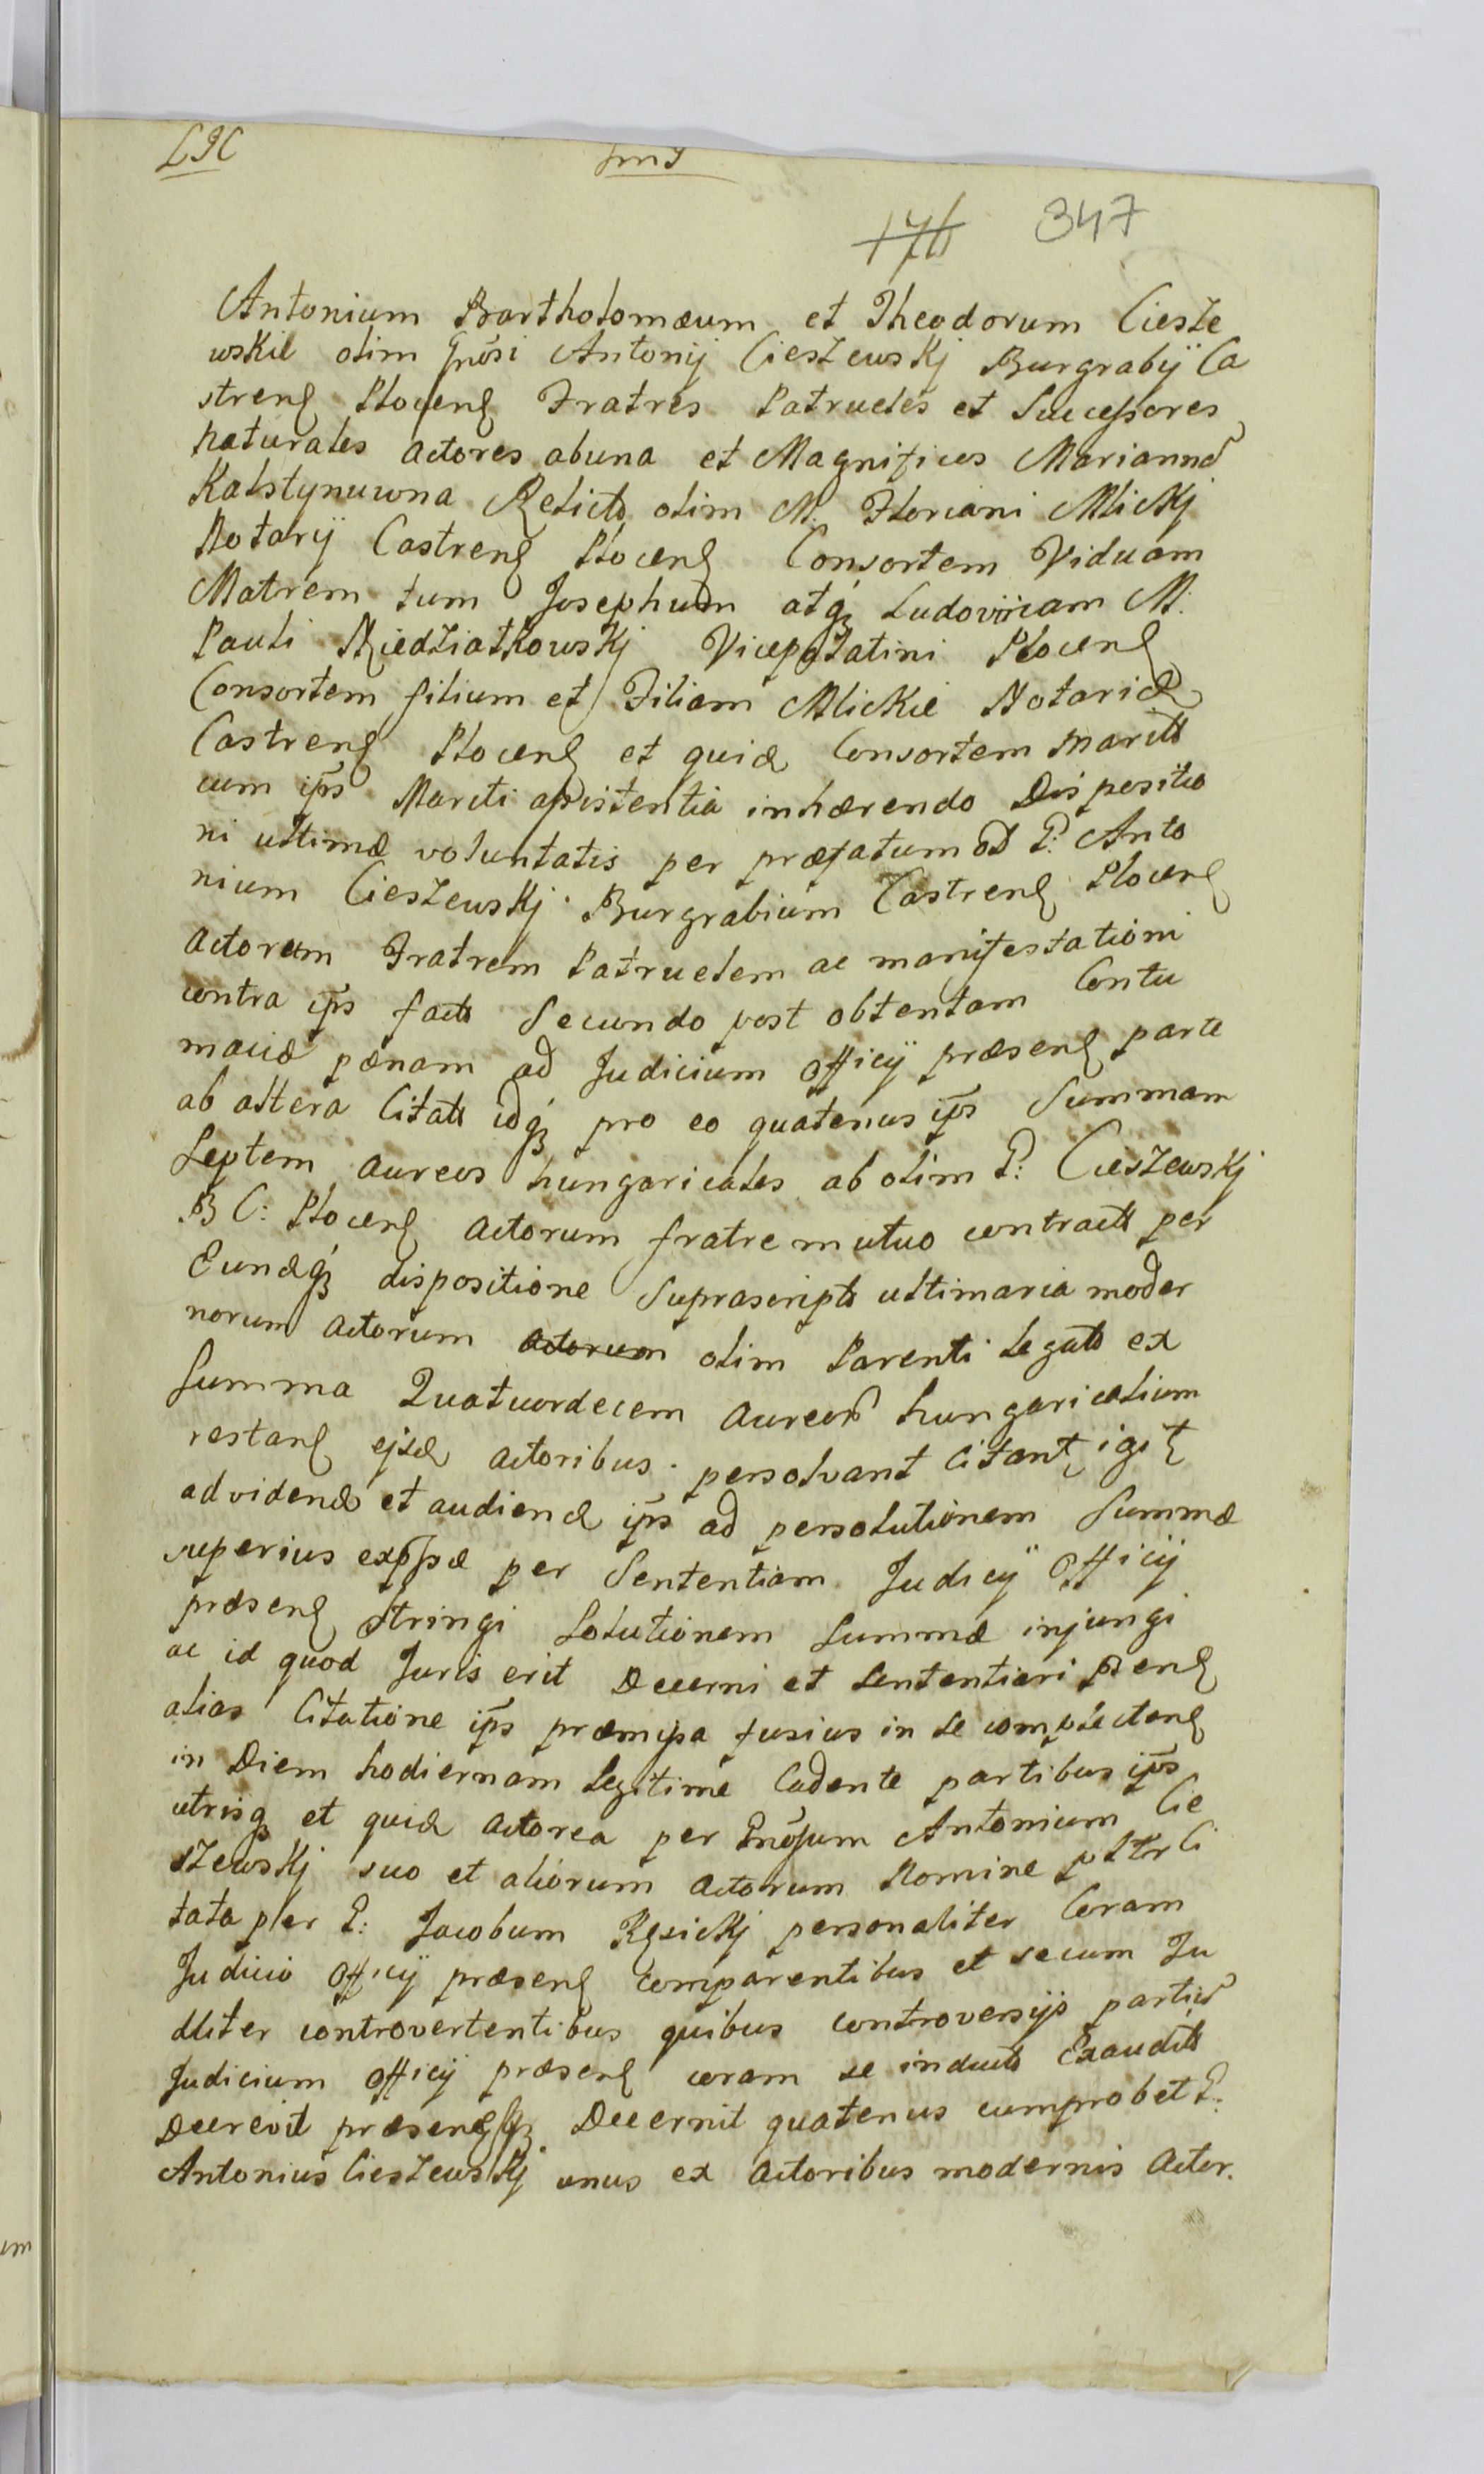 347
Antonium Bartholomæum et Theodorum Ciesze
wskie olim Antonij Cieszewskj Burgrabÿ Ca
streñ Ploceñ Fratres Patrueles et Successores
naturales Actores abuna et Magnificos Mariannã
Kalstynuwna Relicta olim M. Floriani Mlickj
Notarÿ Castreñ Ploceñ Consortem Viduam
Matrem tum Josephum atq3 Ludovicam M:
Pauli Niedziatkowskj Vicepalatini Ploceñ
Consortem filium et Filiam Mlickie Notarid
Castreñ Ploceñ et quid Consortem Marito
cum ips Mariti assistentia inhærendo Dispositio
ni ultimæ voluntatis per præfatum P: Anto
nium Cieszewskj Burgrabium Castreñ Ploceñ
Actorum Fratrem Patruelem ac manifestationi
contra ips facta Secundo post obtentam Contu
maciæ pænam ad Judicium Officÿ præseñ parte
ab altera Citatt idq3 pro eo quatenus ips Summam
Septem Aureos hungaricales ab olim P: Cieszewskj
B C: Ploceñ Actorum fratre mutuo contractt per
Eundq3 dispositione Suprascripta ultimaria moder
norum Actorum Actorum olim Parenti legato ex
Summa Quatuordecem Aureorũ hungaricalium
restañ ejsd Actoribus persolvant Citant igit
ad vidend et audiend ips ad persolutionem Summæ
superius expssæ per Sententiam Judicÿ Officÿ
præseñ stringi Solutionem Summæ injungi
ac id quod Juris erit Decerni et Sententiari
alias Citatione ips præmissa fusius in se complecteñ
in Diem hodiernam Legitime Cadente partibus ips
utrisq3 et quid Actorea per Antonium Cie
szewskj suo et aliorum Actorum Nomine Ci
tata per P: Jacobum personaliter Coram
Judicio Officÿ præseñ comparentibus et secum Ju
dliter controvertentibus quibus controversijs partiũ
Judicium Officÿ præseñ coram se inducto Exaudito
Decrevit præseñq3 Decernit quatenus comprobet P:
Antonius Cieszewskj unus ex Actoribus modernis Actor.